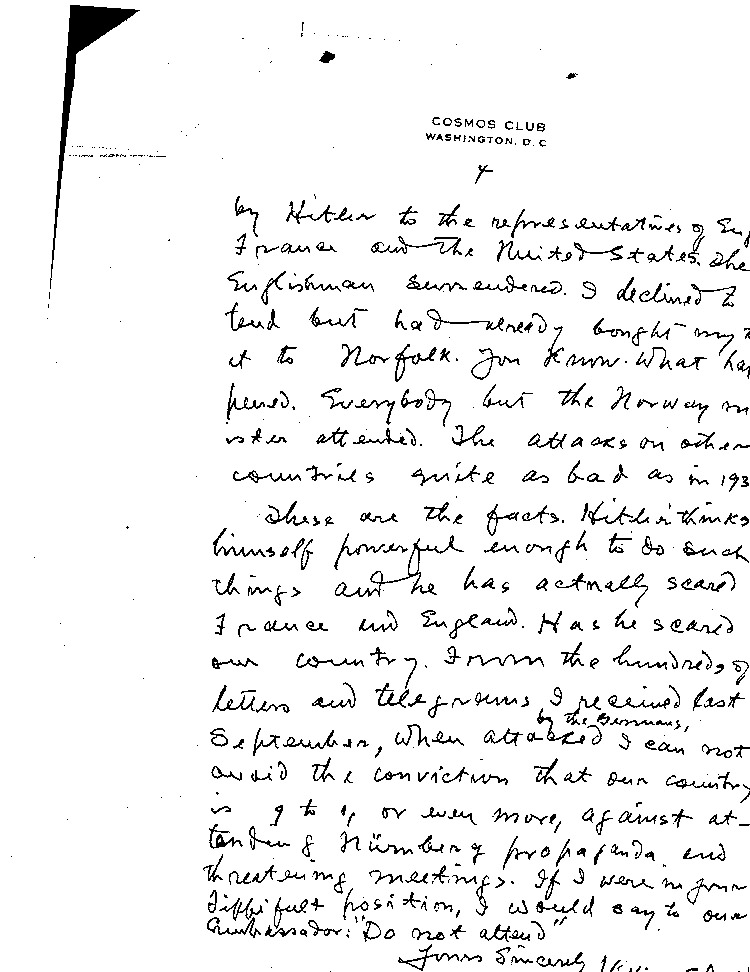 COSMOS CLUB
WASHINGTON, D.C
4
by Hitler to the representatives of Eng
France and the United States. The
Englishman surrendered. I declined to
tend but had already bought my t
et to Norfolk. You know what hap
pened. Everybody but the Norway min
ister attended. The attacks on other
countries quite as bad as in 193
These are the facts. Hitler thinks
himself powerful enough to do such
things and he has actually scared
France and England. Has he scared
our country. From the hundreds of
letters and telegrams I received last
by the Germans,
September, when attacked I can not
avoid the conviction that our country
is 9 to 1, or even more, against at-
tending Nürnberg propaganda and
threatening meetings. If I were in your
difficult position, I would say to our
Ambassador: "Do not attend"
Yours Sincerely